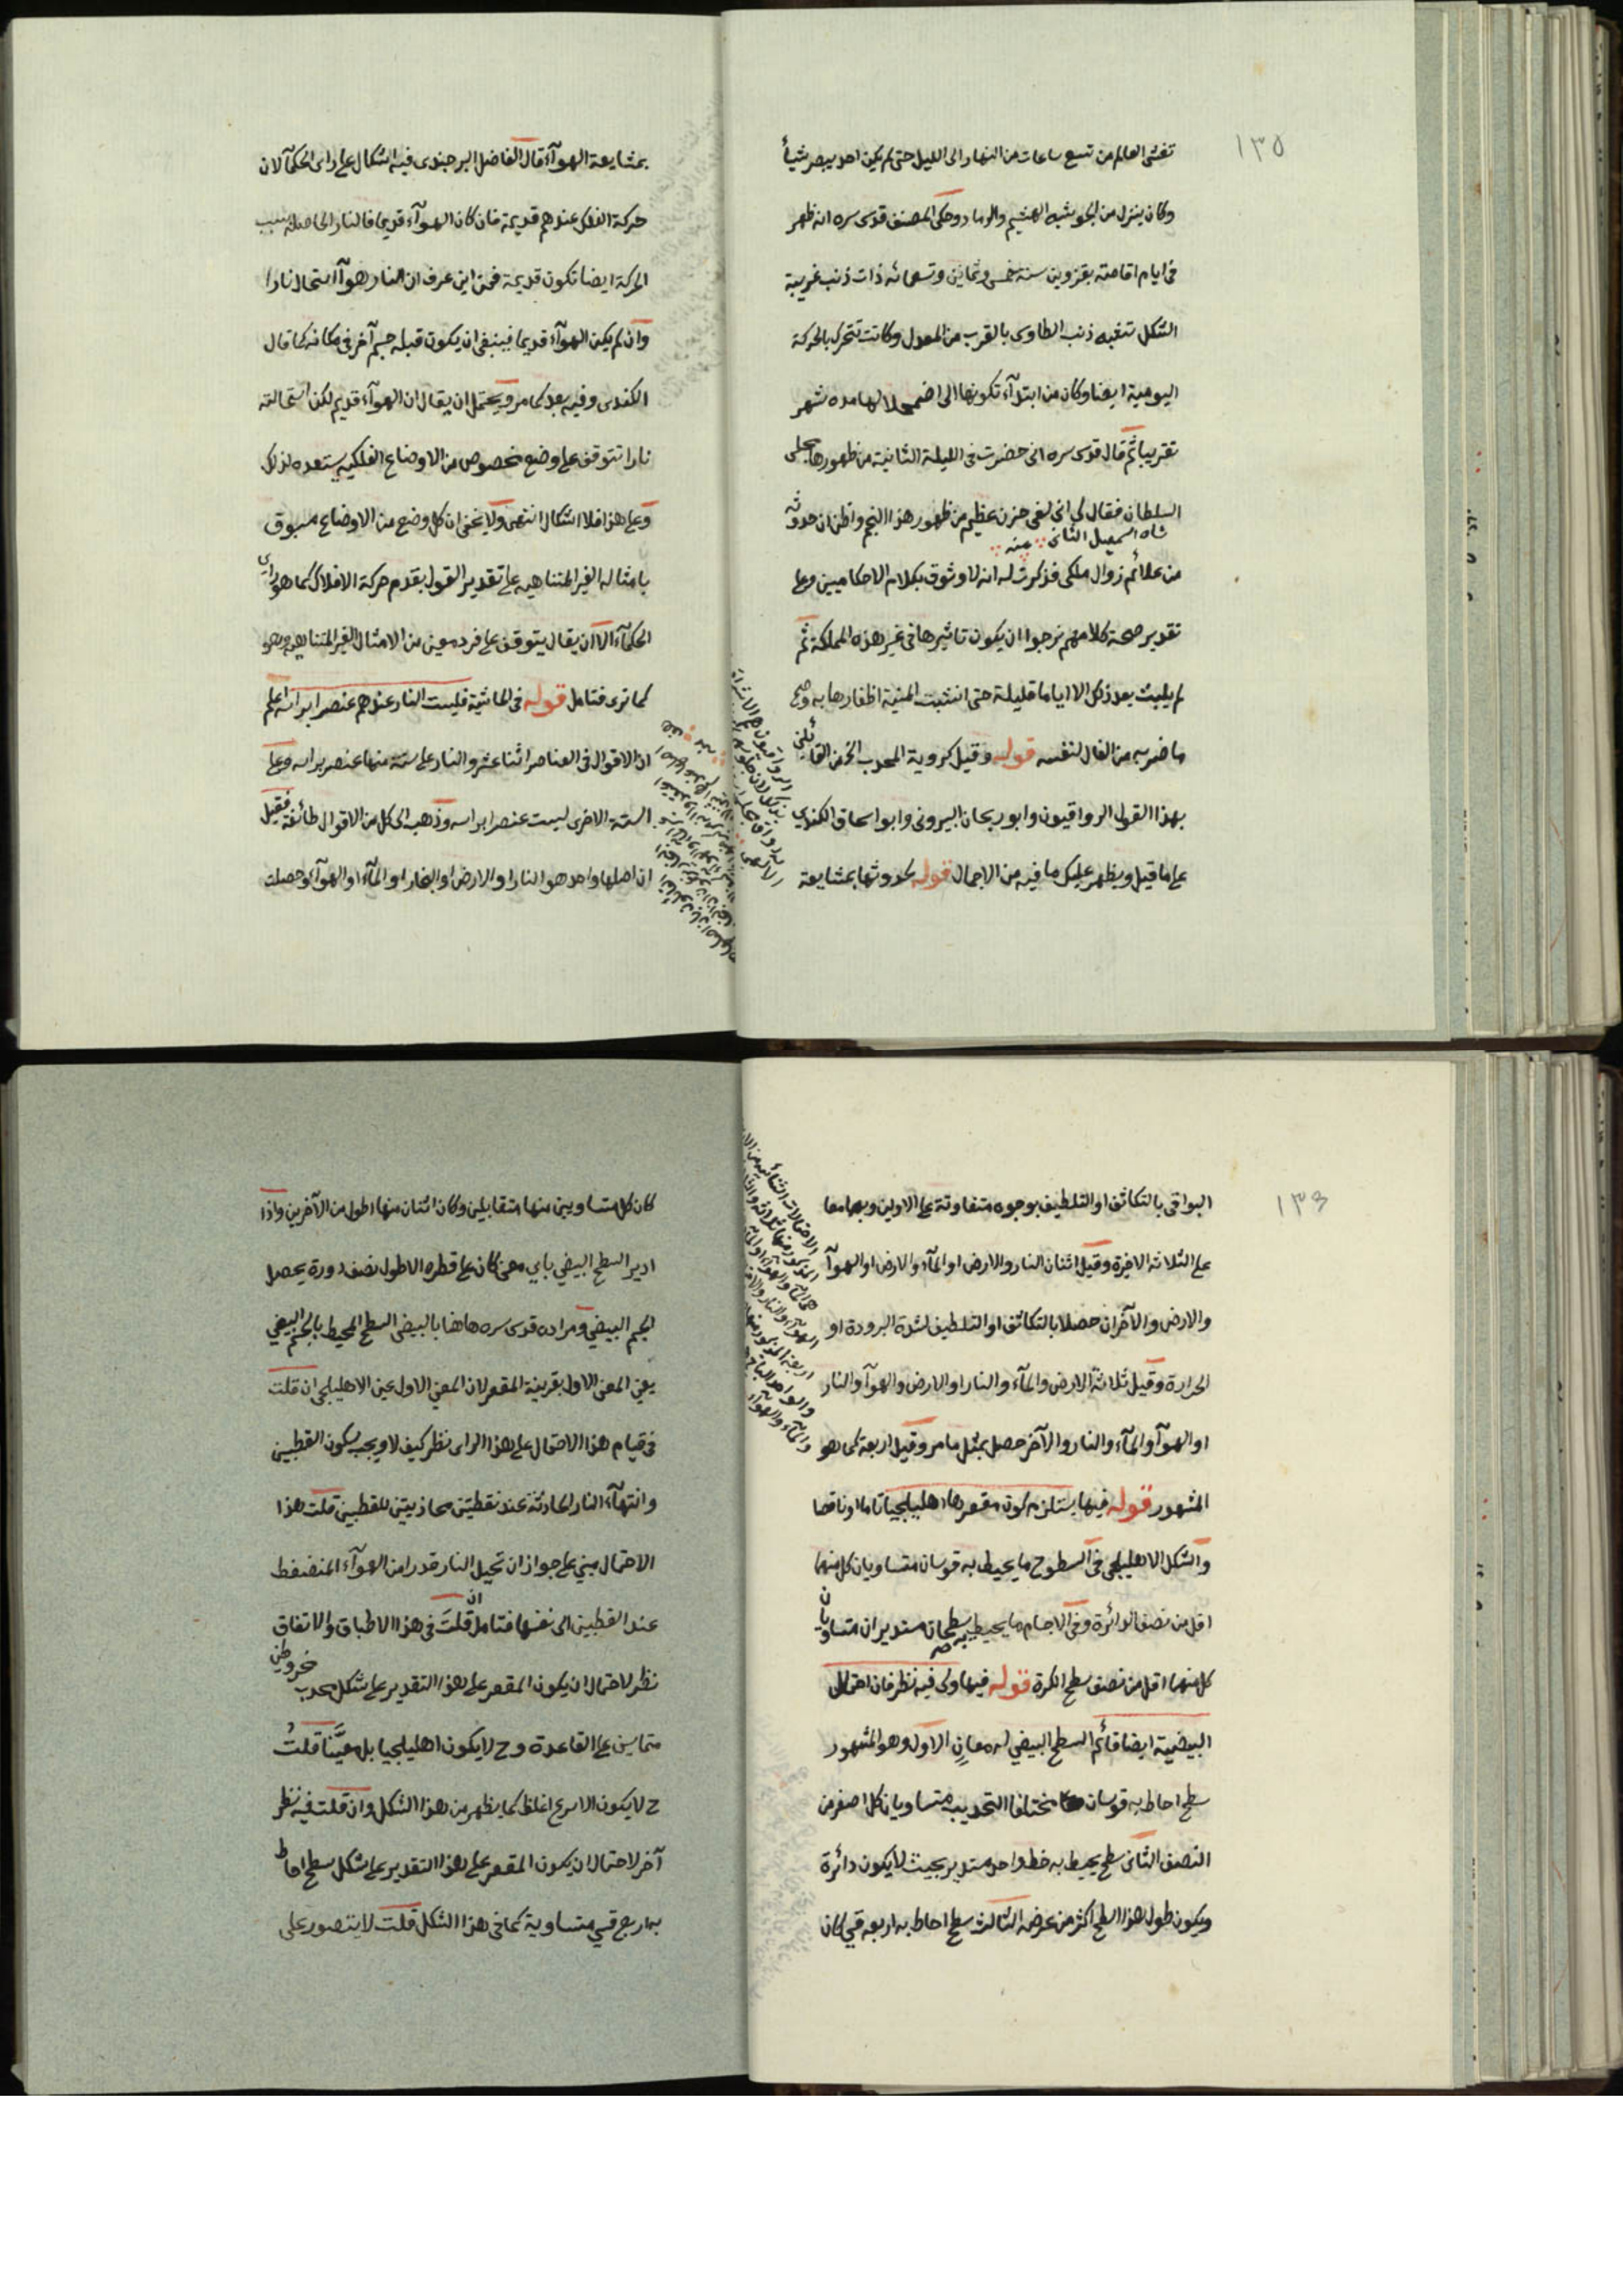 ١٣٥
تغشى العالم من تسع ساعات من النهار الى الليل حتى لم يكن احد يبصر شيأ
وكان ينزل من الجو شبه الهشيم والرماد وحكى المصنف قدس سره انه ظهر
فى ايام اقامته بقزوين سنة خمس وثمانين وتسعمائه ذات ذنب غريبة
الشكل تشبه ذنب الطاوس بالقرب من المعدل وكانت تتحرك بالحركة
اليومية ايضا وكان من ابتدآء تكونها الى اضمحلالها مده شهر
تقريبا ثم قال قدس سره انى حضرت فى الليلة الثانية من ظهورها مجلس
السلطان فقال لى انى لفى حزن عظيم من ظهور هذا النجم واظن ان حدوثه
شاه اسمعيل الثانى منه
من علائم زوال ملكى فذكرت له انه لا وثوق بكلام الاحكاميين وعلى
تقدير صحة كلامهم نرجوا ان يكون تاثيرها فى غير هذه المملكة ثم
لم يلبث بعد ذلك الا اياما قليلة حتى انشبت المنية اظفارها به وصح
ما ضربه من الفال لنفسه قوله وقيل كروية المحدب الخ من القائلين
بهذا القول الرواقيون وابو ريحان البيرونى وابو اسحاق الكندى
على ما قيل ويظهر عليك ما فيه من الاجمال قوله لحدوثها بمشايعة
بمشايعة الهوآء قال الفاضل البرجندى فيه اشكال على راى الحكمآ لان
حركة الفلك عندهم قديمة فان كان الهوآء قديما فالنار الحاصلة بسبب
الحركة ايضا تكون قديمة فمن اين عرف ان النار هوآ استحال نارا
وان لم يكن الهوآء قديما فينبغى ان يكون قبله جسم آخر فى مكانه كما قال
الكندى وفيه بعد كما مر ويحتمل ان يقال ان الهوآء قديم لكن استحالته
نارا تتوقف على وضع مخصوص من الاوضاع الفلكيه يستعده لذلك
وعلى هذا فلا اشكال انتهى ولا يخفى ان كل وضع من الاوضاع مسبوق
بامثاله الغير المتناهيه على تقدير القول بقدم حركة الافلاك كما هو راى
الحكمآء الا ان يقال يتوقف على فرد معين من الامثال الغير المتناهيه وهو
كما ترى فتامل قوله فى الحاشية فليست النار عندهم عنصرا براسه اعلم
ان الاقوال فى العناصر اثنا عشر والنار على ستة منها عنصر براسه وعلى
الستة الاخرى ليست عنصرا براسه وذهب الى كل من الاقوال طائفة فقيل
ان اصلها واحد هو النار او الارض او البخار او المآء او الهوآء وحصلت
١٣٦
البواقى بالتكاثف او التلطيف بوجوه متفاوتة على الاولين وبهما معا
على الثلاثه الاخيرة وقيل اثنان النار والارض او المآء والارض او الهوآ
والارض والآخران حصلا بالتكاثف او التلطيف لشدة البرودة او
الحرارة وقيل ثلاثة الارض والمآء والنار او الارض والهوآ والنار
او الهوآ والمآء والنار والآخر حصل بمثل ما مر وقيل اربعة كما هو
المشهور قوله فيها يستلزم كون مقعرها اهليلجيا تاما او ناقصا
والشكل الاهليلجى فى السطوح ما يحيط به قوسان متساويان كل منهما
اقل من نصف الدائرة وفى الاجسام ما يحيط به سطحان مستديران متساويان
كل منهما اقل من نصف سطح الكرة قوله فيها ولى فيه نظر فان احتمال
البيضية ايضا قائم السطح البيضي له معانٍ الاول وهو المشهور
سطح احاط به قوسان مختلفا التحديب متساويان كل اصغر من
النصف الثانى سطح يحيط به خط واحد مستدير بحيث لا يكون دائرة
ويكون طول هذا السطح اكثر من عرضه الثالث سطح احاط به اربعه قسي كان
كان كل متساويين منها متقابلين وكان اثنان منها اطول من الآخرين واذا
ادير السطح البيضي باي معنى كان على قطره الاطول نصف دورة يحصل
الجسم البيضي ومراده قدس سره هاهنا بالبيضى السطح المحيط بالجسم البيضي
يعني المعنى الاول بقرينة المقعر لان المعنى الاول عين الاهليلجى ان قلت
فى قيام هذا الاحتمال على هذا الراى نظر كيف لا ويجب سكون القطبين
وانتهآء النار الحادثة عند نقطتين محاذيتين للقطبين قلت هذا
الاحتمال مبني على جواز ان تحيل النار قدرا من الهوآء المنضغط
عند القطبين الى نفسها فتامل ان قلتَ فى هذا الاطباق والاتفاق
نظر لاحتمال ان يكون المقعر على هذا التقدير على شكل محدب مخروطين
متماسين على القاعدة وح لا يكون اهليلجيا بل معيَّنا قلتُ
ح لا يكون الاسرع اغلظ كما يظهر من هذا الشكل وان قلت فيه نظر
آخر لاحتمال ان يكون المقعر على هذا التقدير على شكل سطح احاط
به اربع قسي متساوية كما فى هذا الشكل قلت لا يتصور على